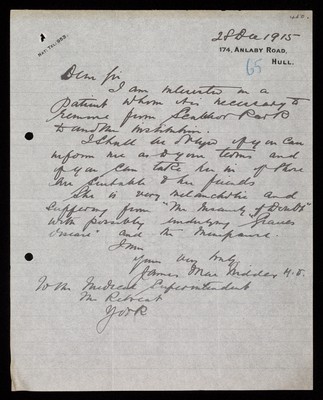 460.
NAT. TEL. 989.
28 Dec 1915
174, ANLABY ROAD,
HULL.
65
Dear Sir
I am interested in a
Patient whom it is necessary to
remove from Scalebor Park
to another institution.
I shall be obliged if you can
inform me as to your terms and
if you can take her in if those
are suitable to her friends
She is very melancholic and
suffering from "the Insanity of Doubt"
with possibly underlying "Graves
Disease" and the Menopause.
I am
Yours very truly
James Mac M.D.
To the Medical Superintendent
The Retreat
York